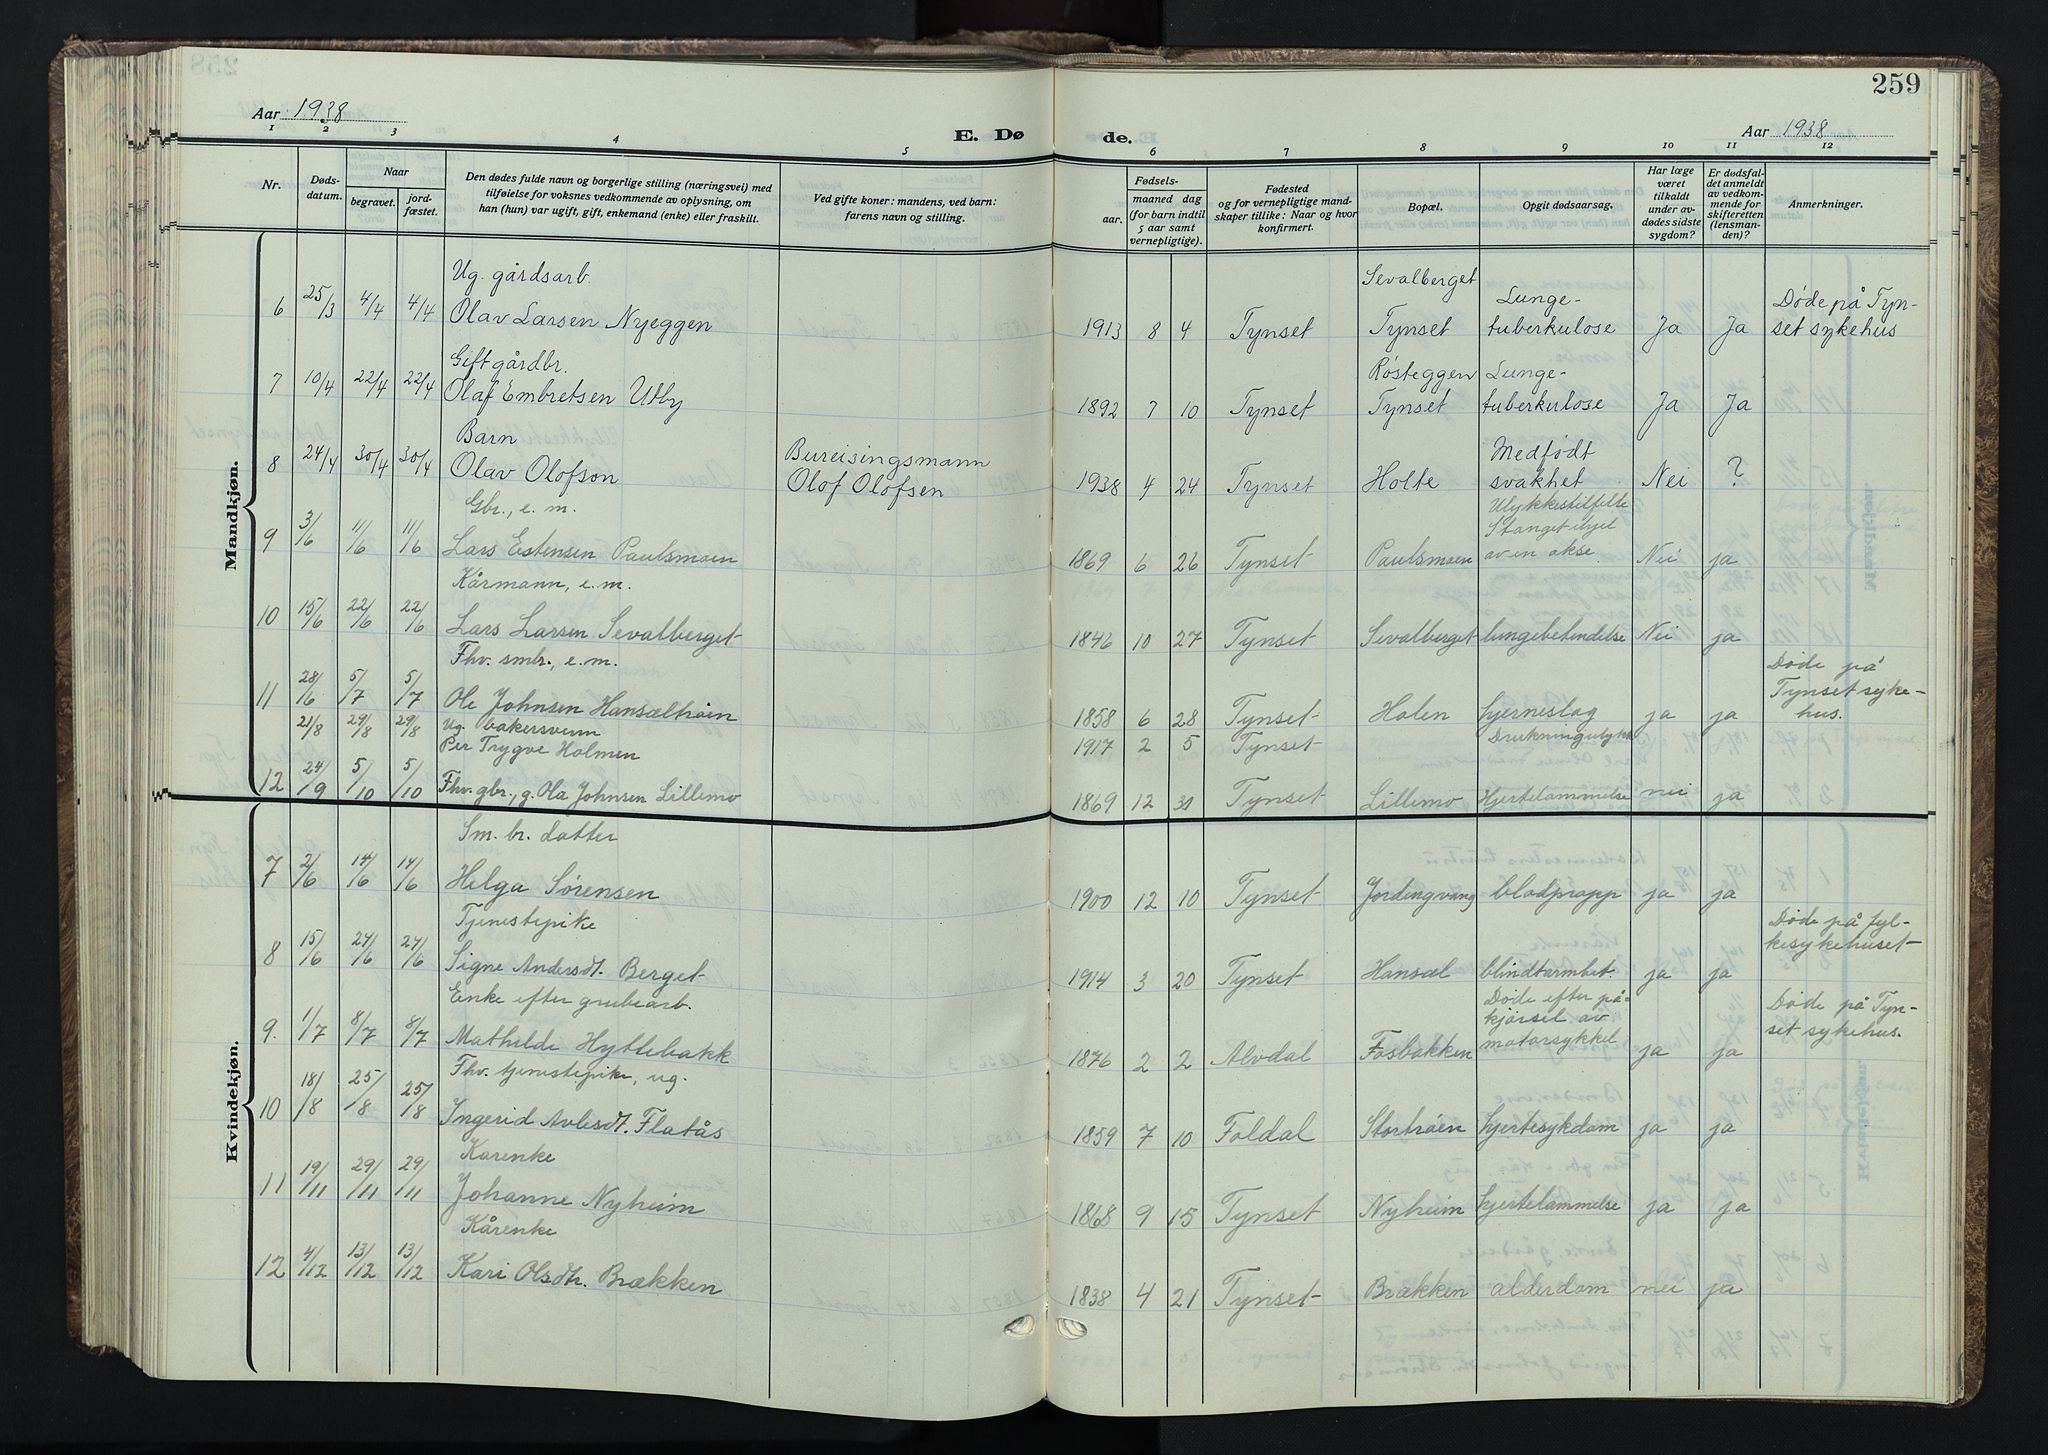 259
Aar 1938
E. Dø
de.
Aar 1938
1 2 3 4 5 6 7 8 9 10 11 12
Nr.
Døds-
datum.
Naar
begravet.
jord-
fæstet.
Den dødes fulde navn og borgerlige stilling (næringsvei) med
tilføielse for voksnes vedkommende av oplysning, om
han (hun) var ugift, gift, enkemand (enke) eller fraskilt.
Ved gifte koner: mandens, ved barn:
farens navn og stilling.
Fødsels-
aar.
maaned dag
(for barn indtil
5 aar samt
vernepligtige).
Fødested
og for vernepligtige mand-
skaper tillike: Naar og hvor
konfirmert.
Bopæl.
Opgit dødsaarsag.
Har læge
været
tilkaldt
under av-
dødes sidste
sygdom?
Er dødsfal-
det anmeldt
av vedkom-
mende for
skifteretten
(lensman-
den)?
Anmerkninger.
Mandkjøn.
Ug. gårdsarb. Sevalberget Lunge- Døde på Tyn-
6 25/3 4/4 4/4 Olav Larsen Nyeggen 1913 8 4 Tynset Tynset tuberkulose Ja Ja set sykehus
Gift gårdbr. Røsteggen Lunge-
7 10/4 22/4 22/4 Olaf Embretsen Utby 1892 7 10 Tynset Tynset tuberkulose Ja Ja
Barn Bureisingsmann Medfødt
8 24/4 30/4 30/4 Olav Olofson Olof Olofsen 1938 4 24 Tynset Holte svakhet Nei ?
Gbr., e. m. Ulykkestilfelle
Stanget ihjel
9 3/6 11/6 11/6 Lars Estensen Paulsmoen 1869 6 26 Tynset Paulsmoen av en okse. Nei ja
Kårmann, e. m.
10 15/6 22/6 22/6 Lars Larsen Sevalberget 1846 10 27 Tynset Sevalberget lungebetendelse Nei ja
Fhv. smbr., e. m. Døde på
Tynset syke-
11 28/6 5/7 5/7 Ole Johnsen Hansæltrøen 1858 6 28 Tynset Holen hjerneslag ja ja hus.
21/8 29/8 29/8 Ug. bakersvenn
Per Trygve Holmen 1917 2 5 Tynset Drukningsulykk
12 24/9 5/10 5/10 Fhv. gbr., g. Ola Johnsen Lillemo 1869 12 31 Tynset Lillemo Hjertelammelse nei ja
Kvindekjøn.
Sm. br. datter
7 2/6 14/6 14/6 Helga Sørensen 1900 12 10 Tynset Jordengvang blodpropp ja ja
Tjenestepike Døde på fyl-
kesykehuset
8 15/6 24/6 24/6 Signe Andersdt. Berget 1914 3 20 Tynset Hansæl blindtarmbet. ja ja
Enke efter grubearb. Døde efter på- Døde på Tyn-
kjørsel av set sykehus.
9. 1/7 8/7 8/7 Mathilde Hyttebakk 1876 2 2 Alvdal Fosbakken motorsykkel ja ja
Fhv. tjenestepike, ug.
10 18/8 25/8 25/8 Ingerid Avlesdt. Flatås 1859 7 10 Foldal Stortrøen hjertesykdom ja ja
Kårenke
11 19/11 29/11 29/11 Johanne Nyheim 1868 9 15 Tynset Nyheim hjertelammelse ja ja
Kårenke
12 4/12 13/12 13/12 Kari Olsdtr. Brækken 1838 4 21 Tynset Brækken alderdom nei ja